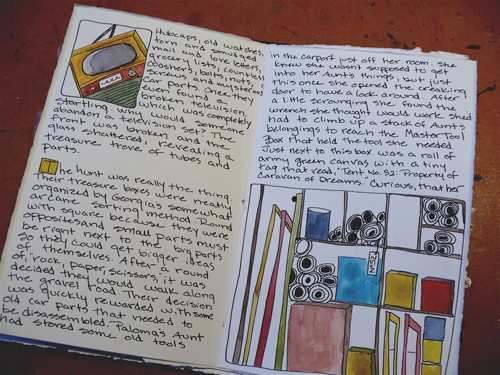 Hubcaps, old watches,
torn and smudged
mail and love letters,
grocery lists, countless
washers, bolts, nuts,
screws and mystery
car parts. Once they
even found a
broken television,
which was completely
startling. Why would someone
abandon a television set? The
front was broken and the
glass shattered, revealing a
treasure trove of tubes and
parts.
The hunt was really the thing.
Their treasure boxes were neatly
organized by Georgia's somewhat
arcane sorting method. Round
with square because they were
opposites and small parts must
be right next to the big parts
so they could get bigger ideas
of themselves. After a round
of, 'rock, paper, scissors,' it was
decided they would walk along
the gravel road. Their decision
was quickly rewarded with some
old car parts that needed to
be disassembled. Paloma's Aunt
had stored some old tools
in the carport just off her room. She
knew she wasn't supposed to get
into her Aunt's things, but just
this once she opened the creaking
door to have a look around. After
a little scrounging she found the
wrench she thought would work. She
had to climb up a stack of Aunt's
belongings to reach the Master Tool
Box that held the tool she needed.
Just next to this box was a roll of
army green canvas with a tiny
tag that read, 'Tent No. 52: Property of
Caravan of Dreams.' Curious, that her
No. 52